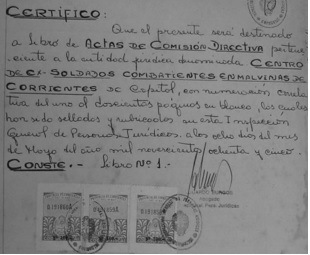 CERTIFICO:
Que el presente será destinado
a Libro de ACTAS DE COMISIÓN DIRECTIVA perte
ciente a la entidad jurídica denominada CENTRO
DE EX-SOLDADOS COMBATIENTES EN MALVINAS DE
CORRIENTES de Capital, con numeración correla
tiva del uno al doscientos páginas en blanco, los cuales
han sido sellados y rubricados en esta Inspección
General de Personas Jurídicas, a los ocho días del mes
de Mayo del año mil novecientos ochenta y cinco.
CONSTE.- Libro Nº 1.-